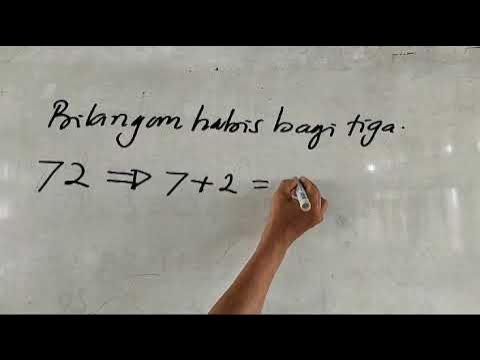 Bilangan habis bagi tiga.
72 ⇒ 7+2 =